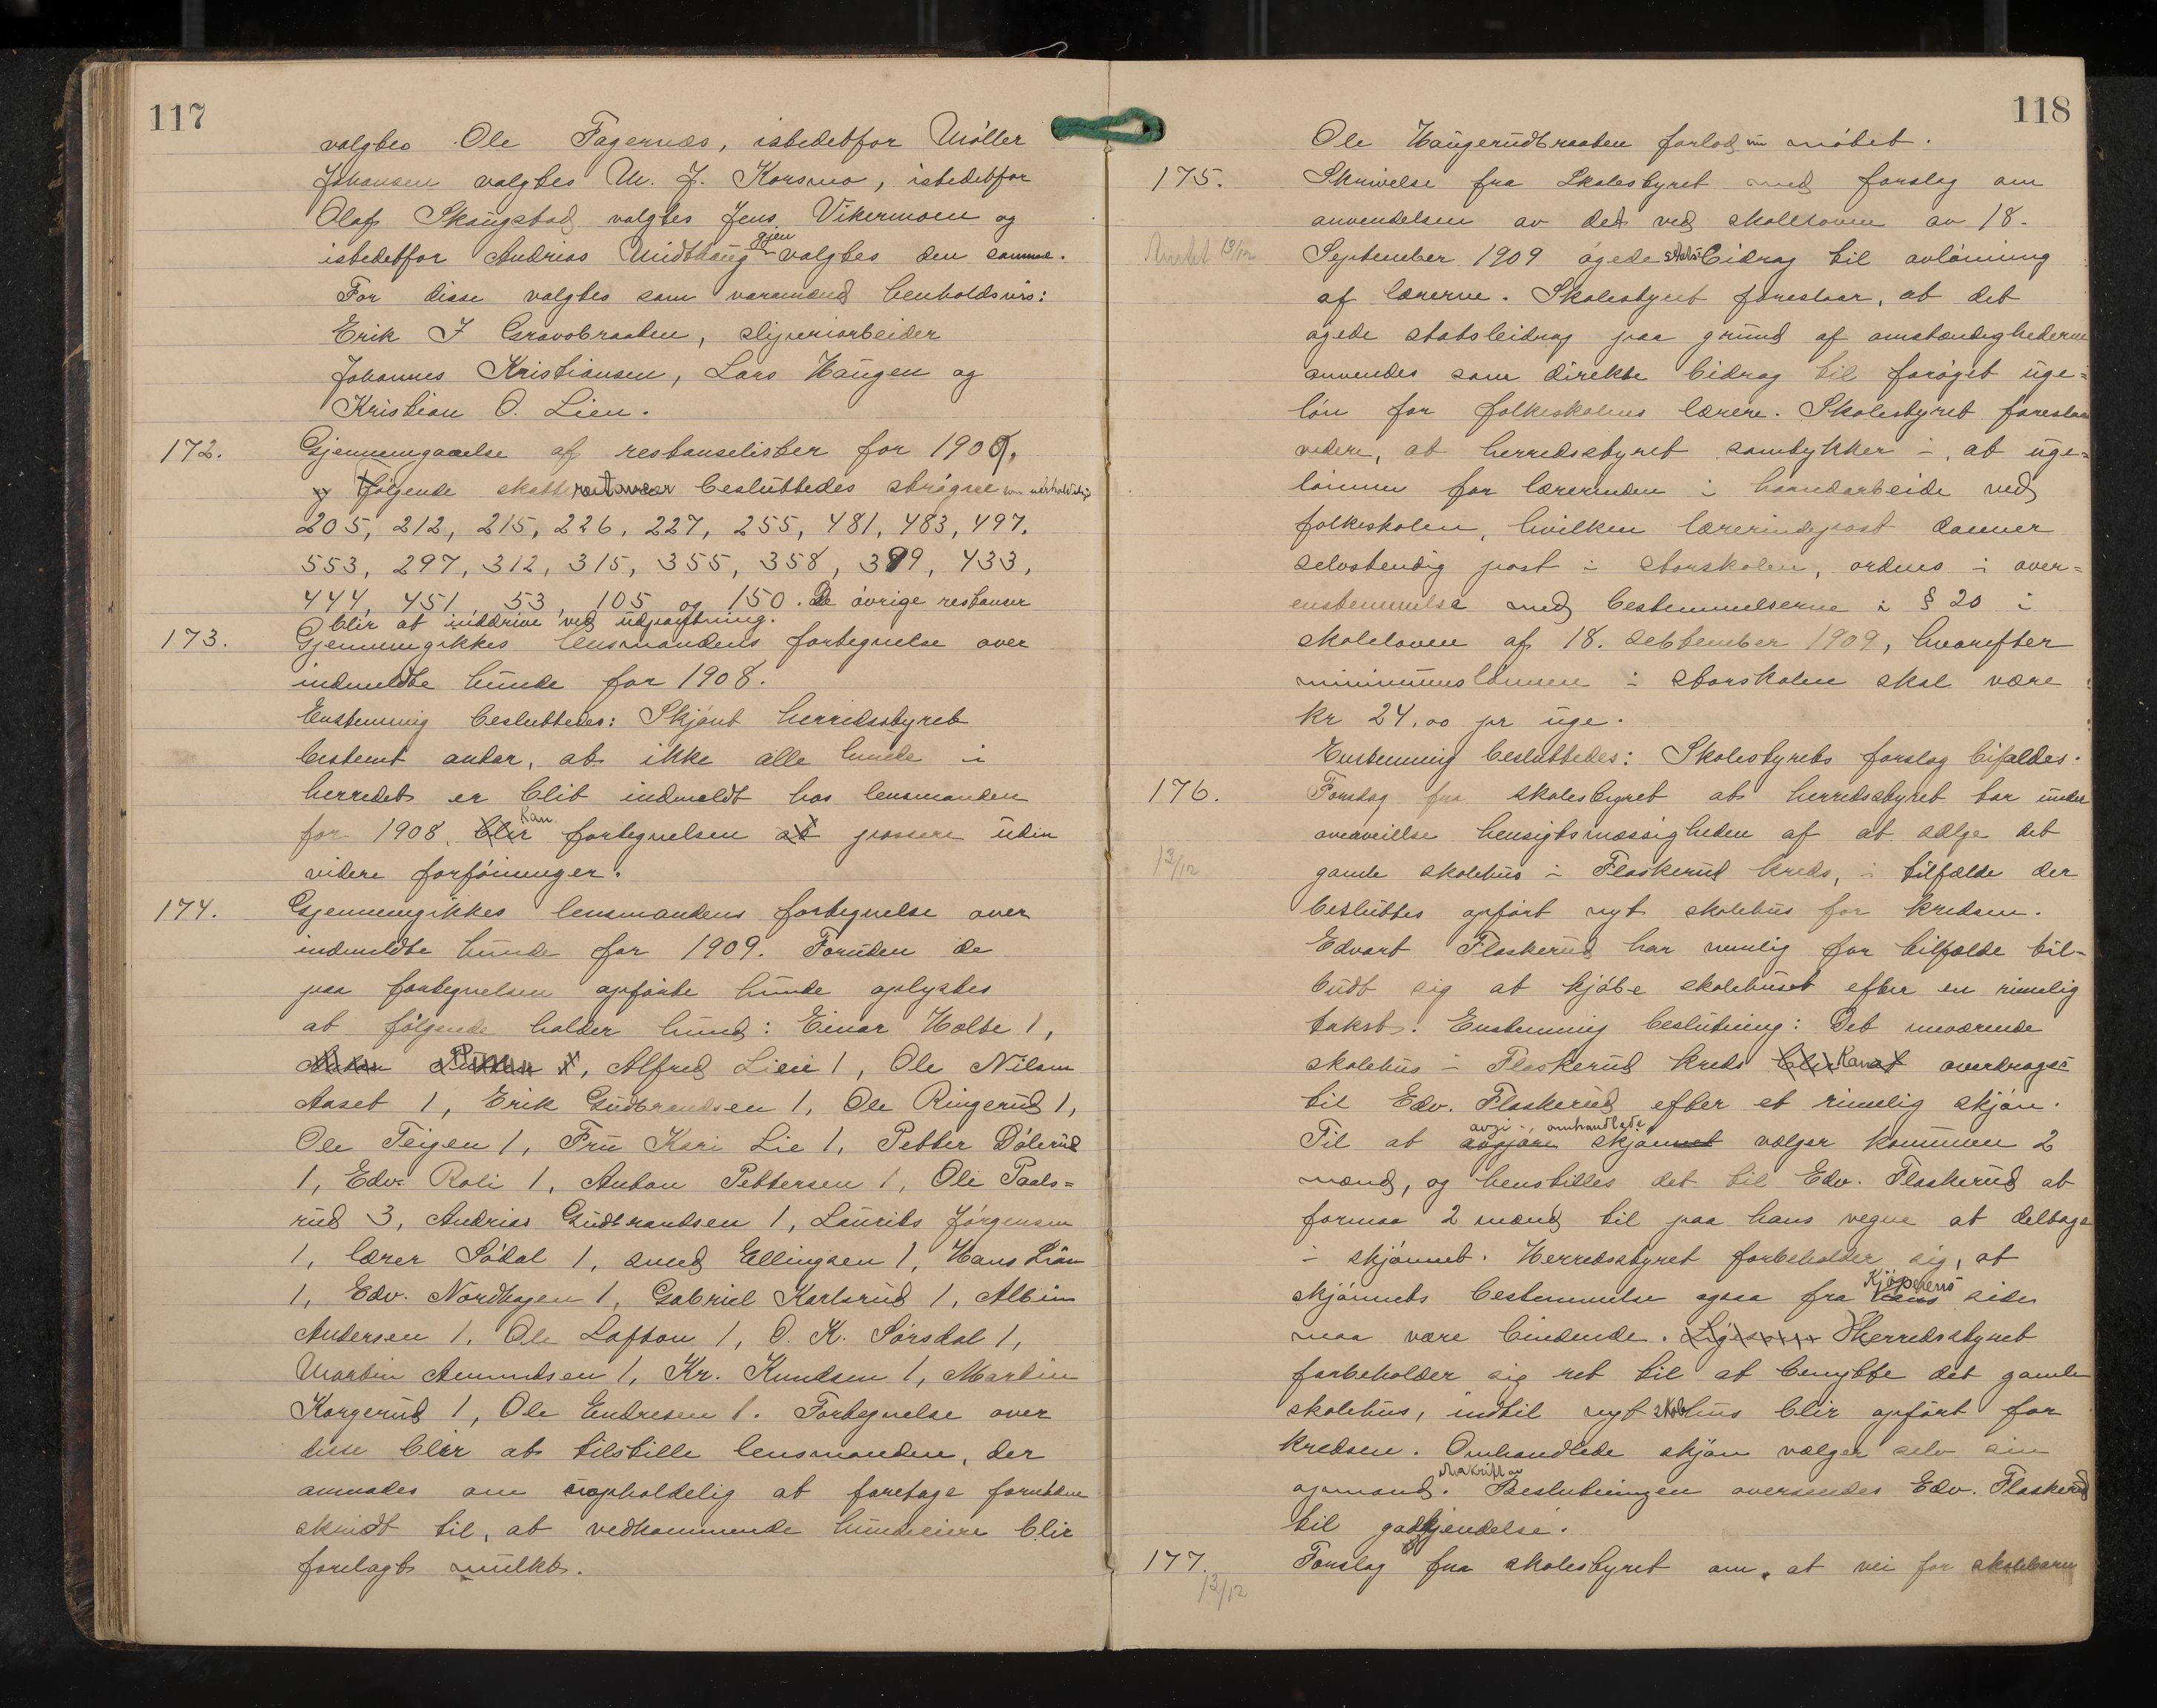 117
valgtes Ole Fagernæs, istedetfor Møller
Johansen valgtes M. J. Korsmo, istedetfor
Olaf Skaugstad valgtes Jens Vikermoen og
istedetfor Andreas Midthaug gjenvalgtes den samme.
For disse valgtes som varamænd henholdsvis:
Erik J Gravobraaten, sliperiarbeider
Johannes Kristiansen, Lars Haugen og
Kristian O. Lien.
172. Gjennemgaaelse af restanselister for 1908.
Følgende skatterestanser besluttedes strøgne som uerholdelige
205, 212, 215, 226, 227, 255, 481, 483, 497.
553, 297, 312, 315, 355, 358, 399, 433,
444, 451, 53, 105 og 150. De øvrige restanser
blir at inddrive ved udpantning.
173. Gjennemgikkes lensmandens fortegnelse over
indmeldte hunde for 1908.
Enstemmig besluttedes: Skjønt herredsstyret
bestemt antar, at ikke alle hunde i
herredet er blit indmeldt hos lensmanden
for 1908, blir kan fortegnelsen at passere uden
videre forføininger.
174. Gjennemgikkes lensmandens fortegnelse over
indmeldte hunde for 1909. Foruden de
paa fortegnelsen opførte hunde oplystes
at følgende holder hund: Einar Holte 1,
Alfred Lien 1, Ole Nilsen
Aaset 1, Erik Gudbrandsen 1, Ole Ringerud 1,
Ole Teigen 1, Fru Kari Lie 1, Petter Dølerud
1, Edv. Roli 1, Anton Pettersen 1, Ole Paals=
rud 3, Andrias Gudbrandsen 1, Laurits Jørgensen
1, lærer Sødal 1, smed Ellingsen 1, Hans Liän
1, Edv. Nordhagen 1, Gabriel Karlsrud 1, Albin
Andersen 1, Ole Lofton 1, O. K. Sørsdal 1,
Martin Amundsen 1, Kr. Knudsen 1, Martin
Korgerud 1, Ole Endresen 1. Fortegnelse over
disse blir at tilstille lensmanden, der
anmodes om uopholdelig at foretage fornødne
skridt til, at vedkommende hundeeiere blir
forelagt mulkt.
118
Ole Haugerudbraaten forlod nu mødet.
175. Skrivelse fra Skolestyret med forslag om
anvendelsen av det ved skoleloven av 18.
13/12 September 1909 øgede statsbidrag til avlønning
af lærerne. Skolestyret foreslaar, at det
øgede statsbidrag paa grund af omstændighederne
anvendes som direkte bidrag til forøget uge=
løn for folkeskolens lærere. Skolestyret foreslaar
videre, at herredsstyret samtykker i, at uge=
lønnen for lærerinden i haandarbeide ved
folkeskolen, hvilken lærerindepost danner
selvstendig post i storskolen, ordnes i over=
enstemmelse med bestemmelserne i § 20 i
skoleloven af 18. september 1909, hvorefter
minimumslønnen i storskolen skal være
kr 24.00 pr uge.
Enstemmig besluttedes: Skolestyrets forslag bifaldes.
176. Forslag fra skolestyret at herredsstyret tar under
overveielse hensigtsmæssigheden af at sælge det
13/12 gamle skolehus i Flaskerud kreds, i tilfælde der
besluttes opført nyt skolehus for kredsen.
Edvart Flaskerud har nemlig for tilfælde til-
budt sig at kjøbe skolehuset efter en rimelig
takst. Enstemmig beslutning: Det nuværende
skolehus i Flaskerud kreds blir kan at overdrages
til Edv. Flaskerud efter et rimelig skjøn.
Til at avgjøre avgi omhandlede skjønnet vælger kommunen 2
mænd, og henstilles det til Edv. Flaskerud at
formaa 2 mænd til paa hans vegne at deltage
i skjønnet. Herredsstyret forbeholder sig, at
skjønnets bestemmelse ogsaa fra hans Kjøperens side
maa være bindende. Ligesom Herredsstyret
forbeholder sig ret til at benytte det gamle
skolehus, indtil nyt skolehus blir opført for
kredsen. Omhandlede skjøn vælger selv sin
opmand. Avskrift av Beslutningen oversendes Edv. Flaskerud
til godkjendelse.
177. Forslag fra skolestyret om, at vei for skolebarn
13/12